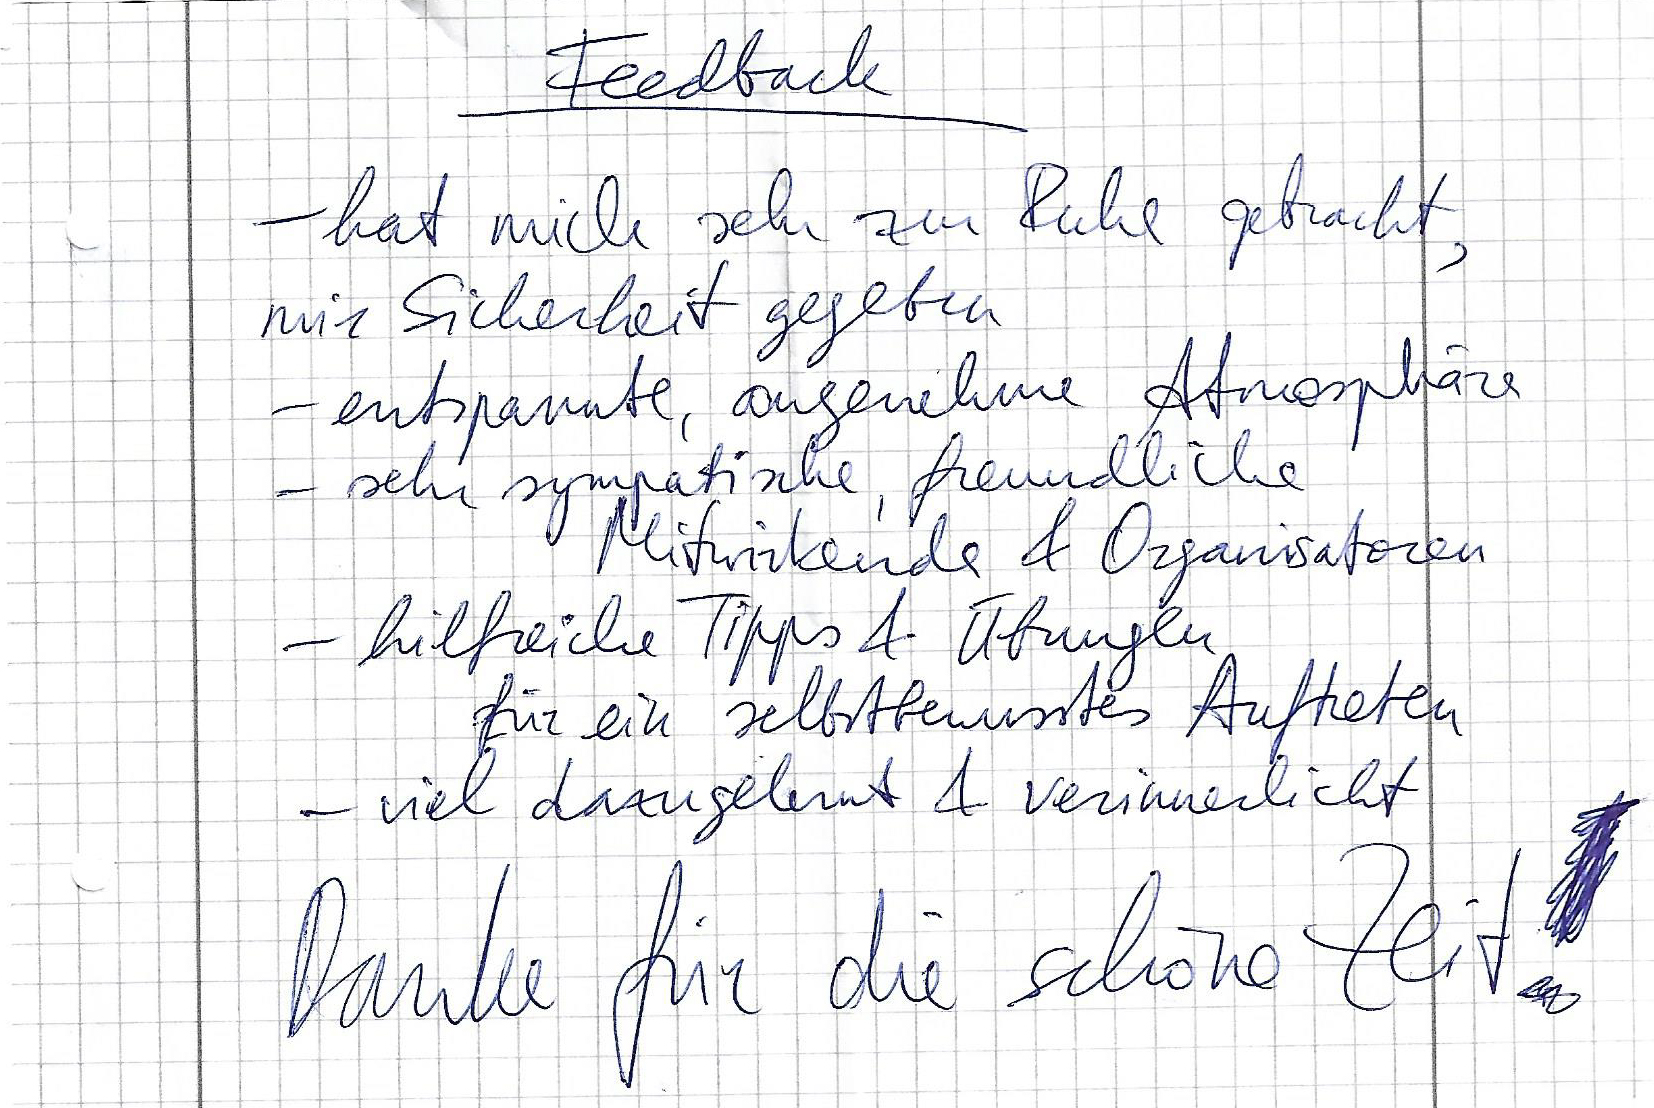 Feedback
- hat mich sehr zur Ruhe gebracht,
mir Sicherheit gegeben
- entspannte, angenehme Atmosphäre
- sehr sympatische, freundliche
Mitwirkende & Organisatoren
- hilfreiche Tipps & Übungen
für ein selbstbewusstes Auftreten
- viel dazugelernt & verinnerlicht
Danke für die schöne Zeit!